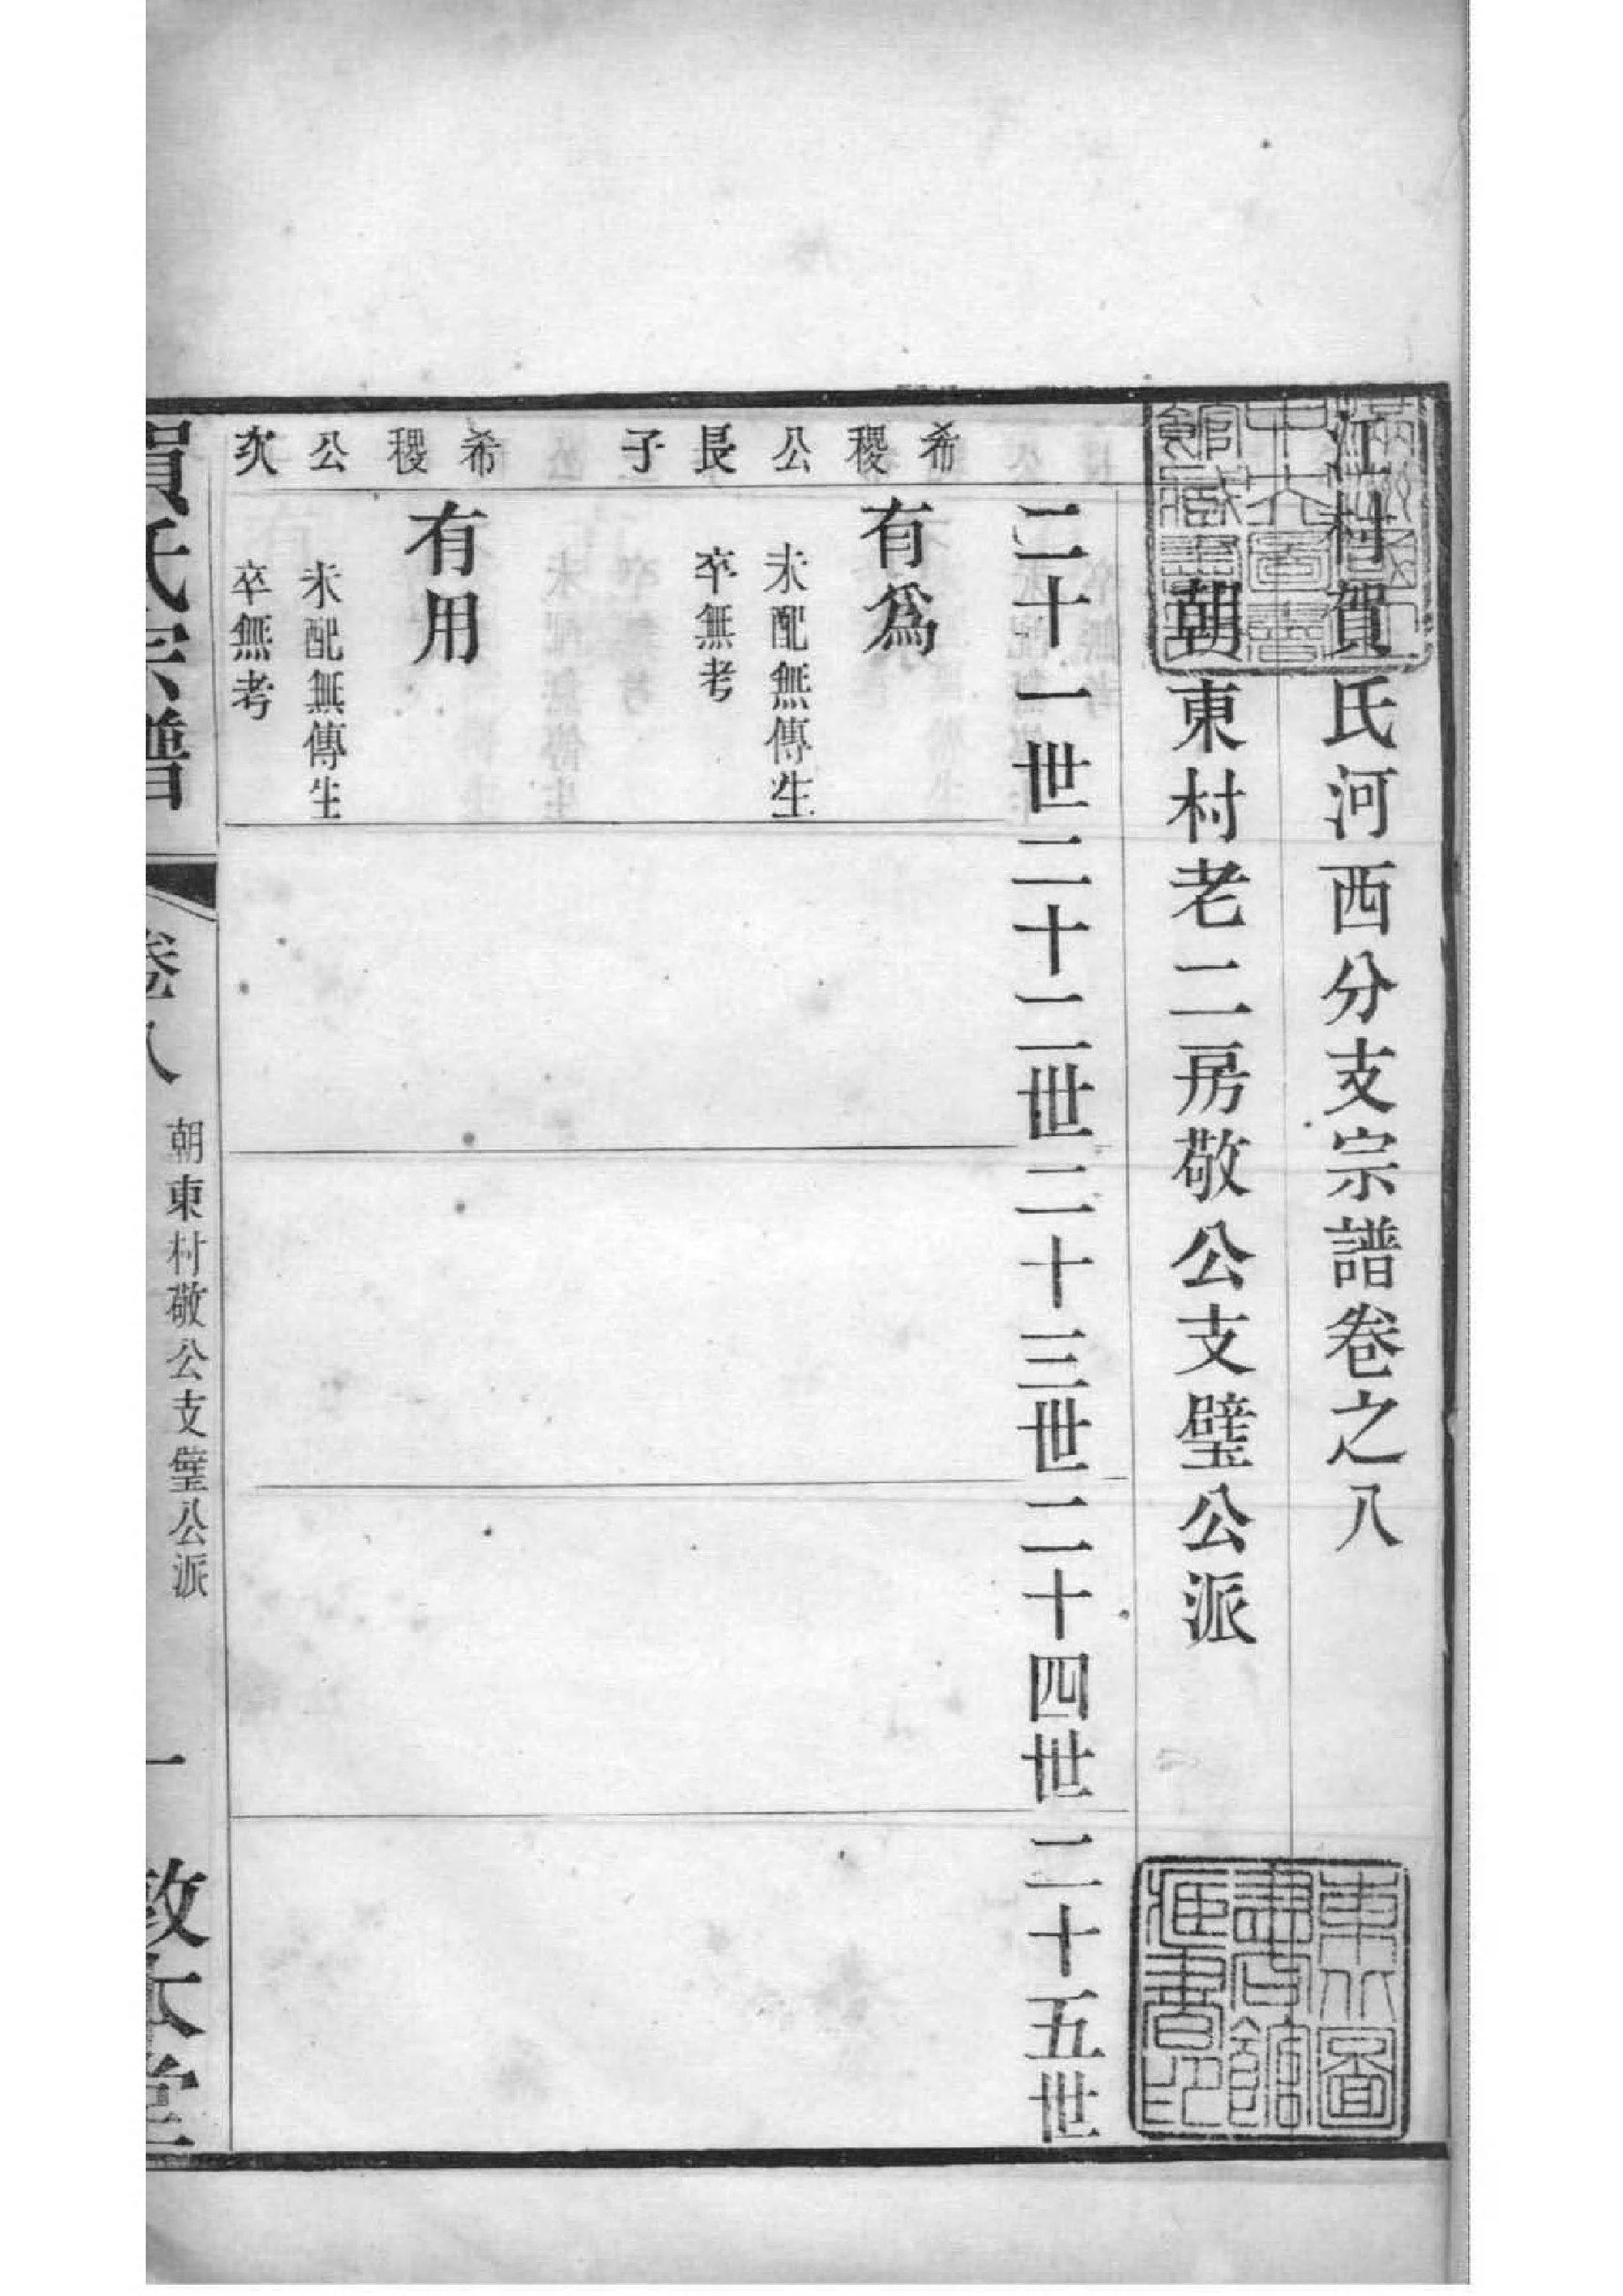 江村賀氏河西分支宗譜卷之八
朝東村老二房敬公支璧公派
二十一世二十二世二十三世二十四世二十五世
希稷公長子
有爲
未配無傳生
卒無考
希稷公次
有用
未配無傳生
卒無考
賀氏宗譜
卷八
朝東村敬公支璧公派
一
敦本堂
東北圖
書館
藏書印